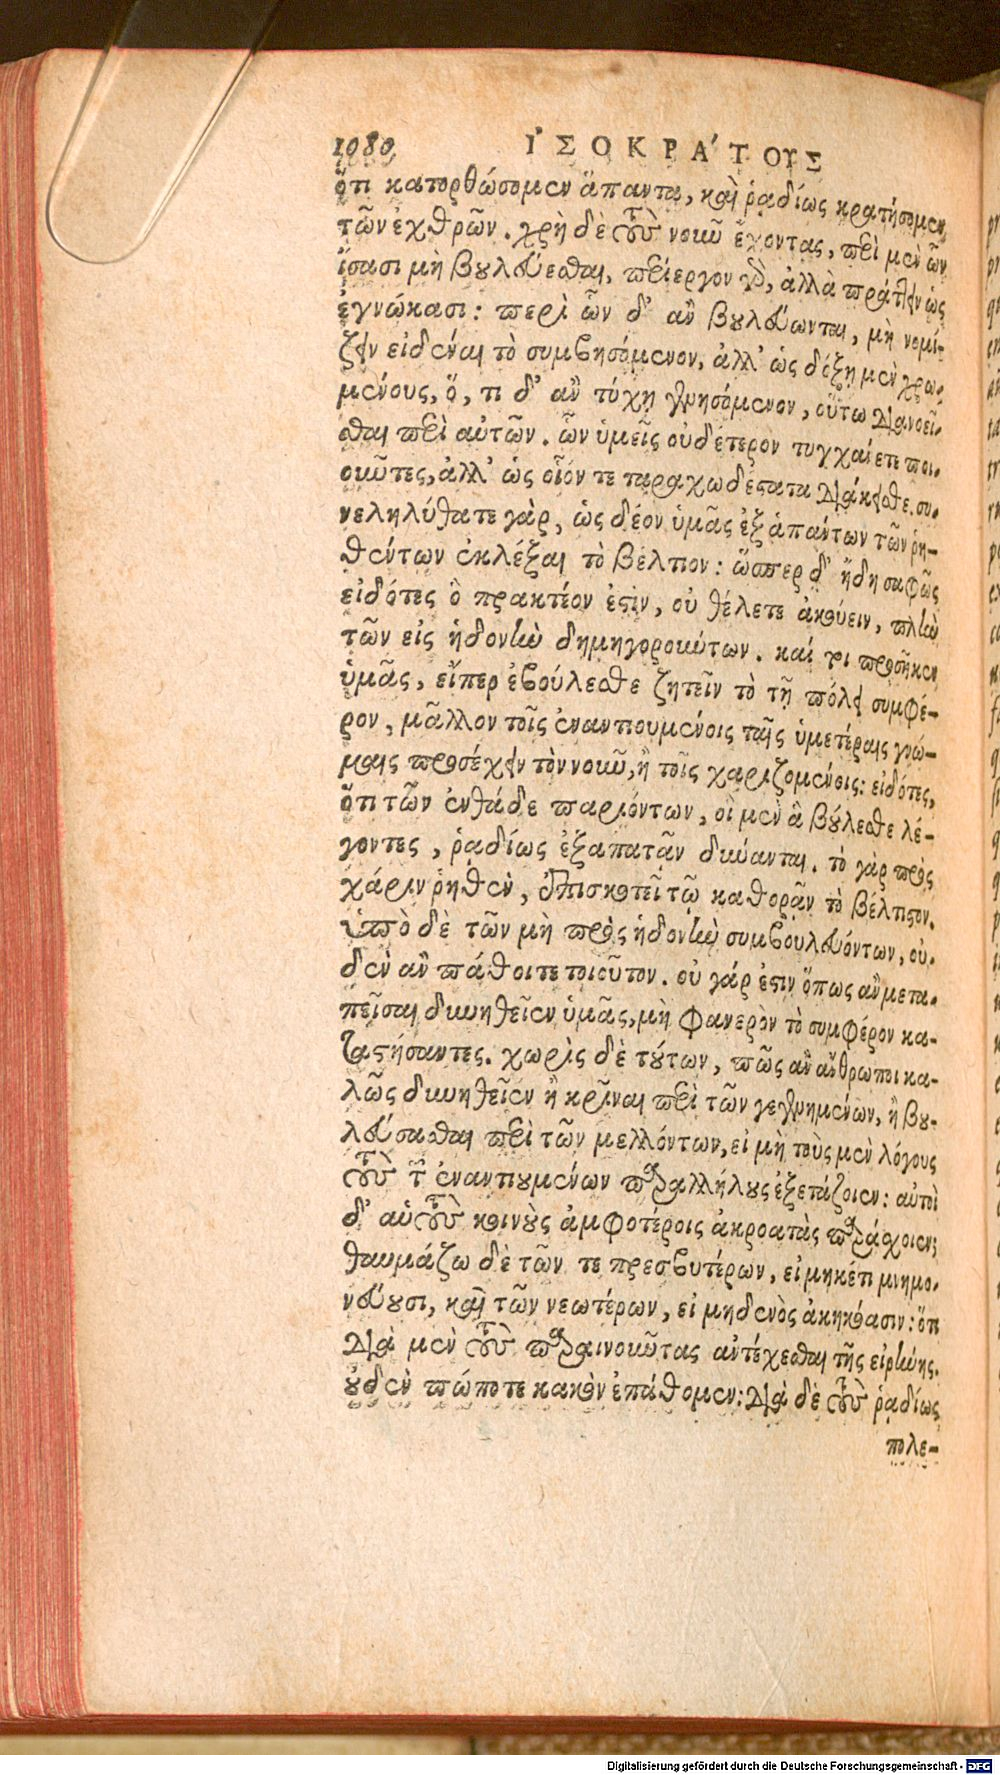 1080 ἸΣΟΚΡΆΤΟΥΣ
ὅτι κατορθώσομεν ἅπαντα, καὶ ῥᾳδίως κρατήσομεν
τῶν ἐχθρῶν. χρὴ δὲ τοὺς νοῦν ἔχοντας, περὶ μὲν ὧν
ἴσασι μὴ βουλεύεσθαι, περίεργον γὰρ, ἀλλὰ πράττειν ὡς
ἐγνώκασι: περὶ ὧν δ' ἂν βουλεύωνται, μὴ νομί-
ζειν εἰδέναι τὸ συμβησόμενον, ἀλλ' ὡς δόξῃ μὲν χρω-
μένους, ὅ, τι δ' ἂν τύχῃ γενησόμενον, οὕτω διανοεῖ-
σθαι περὶ αὐτῶν. ὧν ὑμεῖς οὐδέτερον τυγχάνετε ποι-
οῦντες, ἀλλ' ὡς οἷόν τε ταραχωδέστατα διάκεισθε. συ-
νεληλύθατε γὰρ, ὡς δέον ὑμᾶς ἐξ ἁπάντων τῶν ῥη-
θέντων ἐκλέξαι τὸ βέλτιον: ὥσπερ δ' ἤδη σαφῶς
εἰδότες ὃ πρακτέον ἐστὶν, οὐ θέλετε ἀκούειν, πλὴν
τῶν εἰς ἡδονὴν δημηγορούντων. καί τοι προσῆκεν
ὑμᾶς, εἴπερ ἐβούλεσθε ζητεῖν τὸ τῇ πόλει συμφέ-
ρον, μᾶλλον τοῖς ἐναντιουμένοις ταῖς ὑμετέραις γνώ-
μαις προσέχειν τὸν νοῦν, ἢ τοῖς χαριζομένοις: εἰδότες,
ὅτι τῶν ἐνθάδε παριόντων, οἱ μὲν ἃ βούλεσθε λέ-
γοντες, ῥᾳδίως ἐξαπατᾶν δύνανται. τὸ γὰρ πρὸς
χάριν ῥηθὲν, ἐπισκοτεῖ τῷ καθορᾶν τὸ βέλτιστον.
ὑπὸ δὲ τῶν μὴ πρὸς ἡδονὴν συμβουλευόντων, οὐ-
δὲν ἂν πάθοιτε τοιοῦτον. οὐ γάρ ἐστιν ὅπως ἂν μετα-
πεῖσαι δυνηθεῖεν ὑμᾶς, μὴ φανερὸν τὸ συμφέρον κα-
ταστήσαντες. χωρὶς δὲ τούτων, πῶς ἂν ἄνθρωποι κα-
λῶς δυνηθεῖεν ἢ κρῖναι περὶ τῶν γεγενημένων, ἢ βου-
λεύσασθαι περὶ τῶν μελλόντων, εἰ μὴ τοὺς μὲν λόγους
τοὺς τῶν ἐναντιουμένων παραλλήλους ἐξετάζοιεν: αὐτοὶ
δ' αὑτοὺς κοινοὺς ἀμφοτέροις ἀκροατὰς παράσχοιεν;
θαυμάζω δὲ τῶν τε πρεσβυτέρων, εἰ μηκέτι μνημο-
νεύουσι, καὶ τῶν νεωτέρων, εἰ μηδενὸς ἀκηκόασιν: ὅτι
διὰ μὲν τοὺς παραινοῦντας ἀντέχεσθαι τῆς εἰρήνης,
οὐδὲν πώποτε κακὸν ἐπάθομεν: διὰ δὲ τοὺς ῥᾳδίως
πολε-
Digitalisierung gefördert durch die Deutsche Forschungsgemeinschaft - DFG